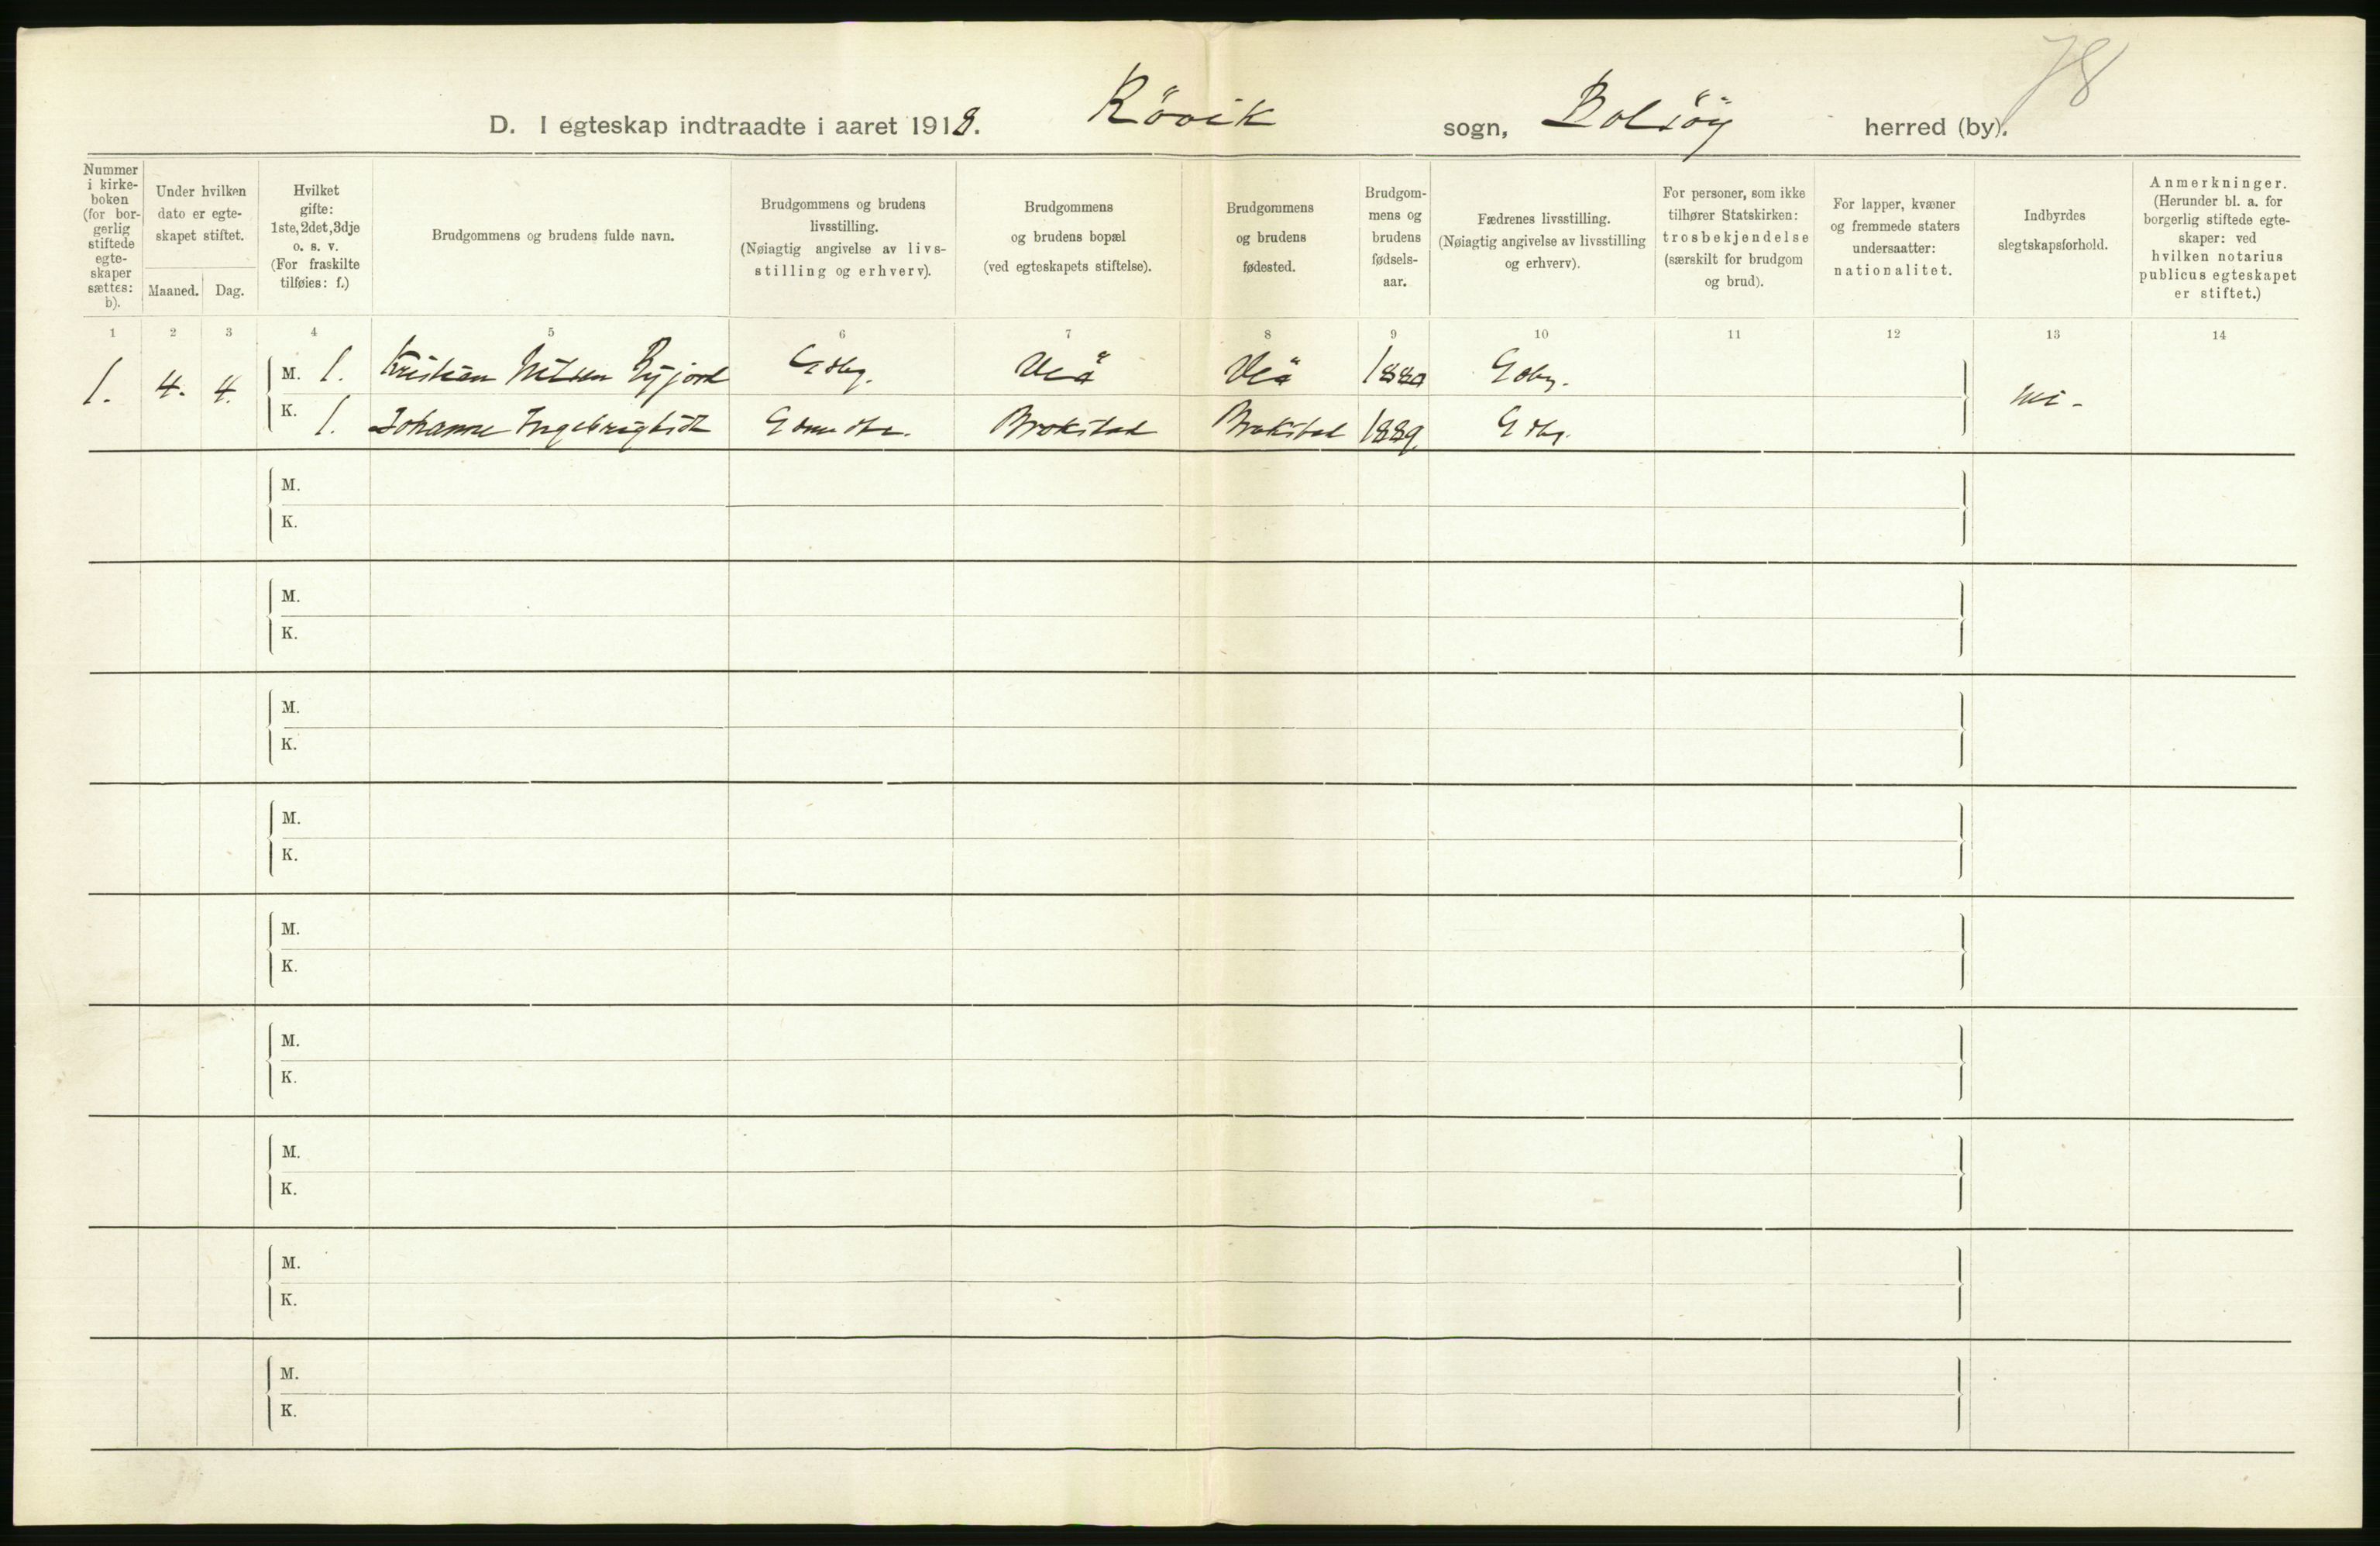 78
D. I egteskap indtraadte i aaret 1918. Rövik sogn, Bolsöy herred (by).
Nummer
i kirke-
boken
(for bor-
gerlig
stiftede
egte-
skaper
sættes:
b).
Under hvilken
dato er egte-
skapet stiftet.
Maaned. Dag.
Hvilket
gifte:
1ste, 2det, 3dje
o. s. v.
(For fraskilte
tilføies: f.)
Brudgommens og brudens fulde navn.
Brudgommens og brudens
livsstilling.
(Nøiagtig angivelse av livs-
stilling og erhverv).
Brudgommens
og brudens bopæl
(ved egteskapets stiftelse).
Brudgommens
og brudens
fødested.
Brudgom-
mens og
brudens
fødsels-
aar.
Fædrenes livsstilling.
(Nøiagtig angivelse av livsstilling
og erhverv).
For personer, som ikke
tilhører Statskirken:
trosbekjendelse
(særskilt for brudgom
og brud).
For lapper, kvæner
og fremmede staters
undersaatter:
nationalitet.
Indbyrdes
slegtskapsforhold.
Anmerkninger.
(Herunder bl. a. for
borgerlig stiftede egte-
skaper: ved
hvilken notarius
publicus egteskapet
er stiftet.)
1 2 3 4 5 6 7 8 9 10 11 12 13 14
1. 4. 4. M. 1. Kristian Nilsen Veå Veå 1880 nei-
K. 1. Johanne Brokstad Brokstad 1889
M.
K.
M.
K.
M.
K.
M.
K.
M.
K.
M.
K.
M.
K.
M.
K.
M.
K.